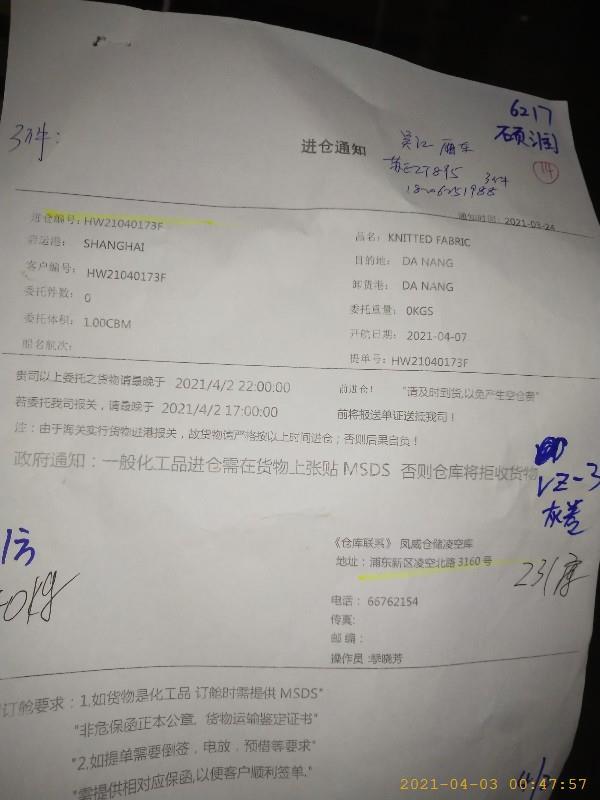 6217
硕润
14
3件:
进仓通知
吴江 厢车
苏E27895
3件
通知时间: 2021-03-24
进仓编号: HW21040173F
品名: KNITTED FABRIC
启运港: SHANGHAI
目的地: DA NANG
客户编号: HW21040173F
卸货港: DA NANG
委托件数: 0
委托重量: 0KGS
委托体积: 1.00CBM
开航日期: 2021-04-07
船名航次:
提单号: HW21040173F
贵司以上委托之货物请最晚于 2021/4/2 22:00:00 前进仓! "请及时到货,以免产生空仓费"
若委托我司报关,请最晚于 2021/4/2 17:00:00 前将报送单证送抵我司!
注:由于海关实行货物进港报关,故货物请严格按以上时间进仓;否则后果自负!
政府通知:一般化工品进仓需在货物上张贴 MSDS 否则仓库将拒收货物
VZ-3
灰卷
《仓库联系》 凤威仓储凌空库
地址: 浦东新区凌空北路 3160 号
231库
0Kg
电话: 66762154
传真:
邮编:
操作员:季晓芳
订舱要求: 1.如货物是化工品 订舱时需提供 MSDS"
"非危保函正本公章, 货物运输鉴定证书"
"2.如提单需要倒签,电放,预借等要求"
"需提供相对应保函,以便客户顺利签单."
2021-04-03 00:47:57